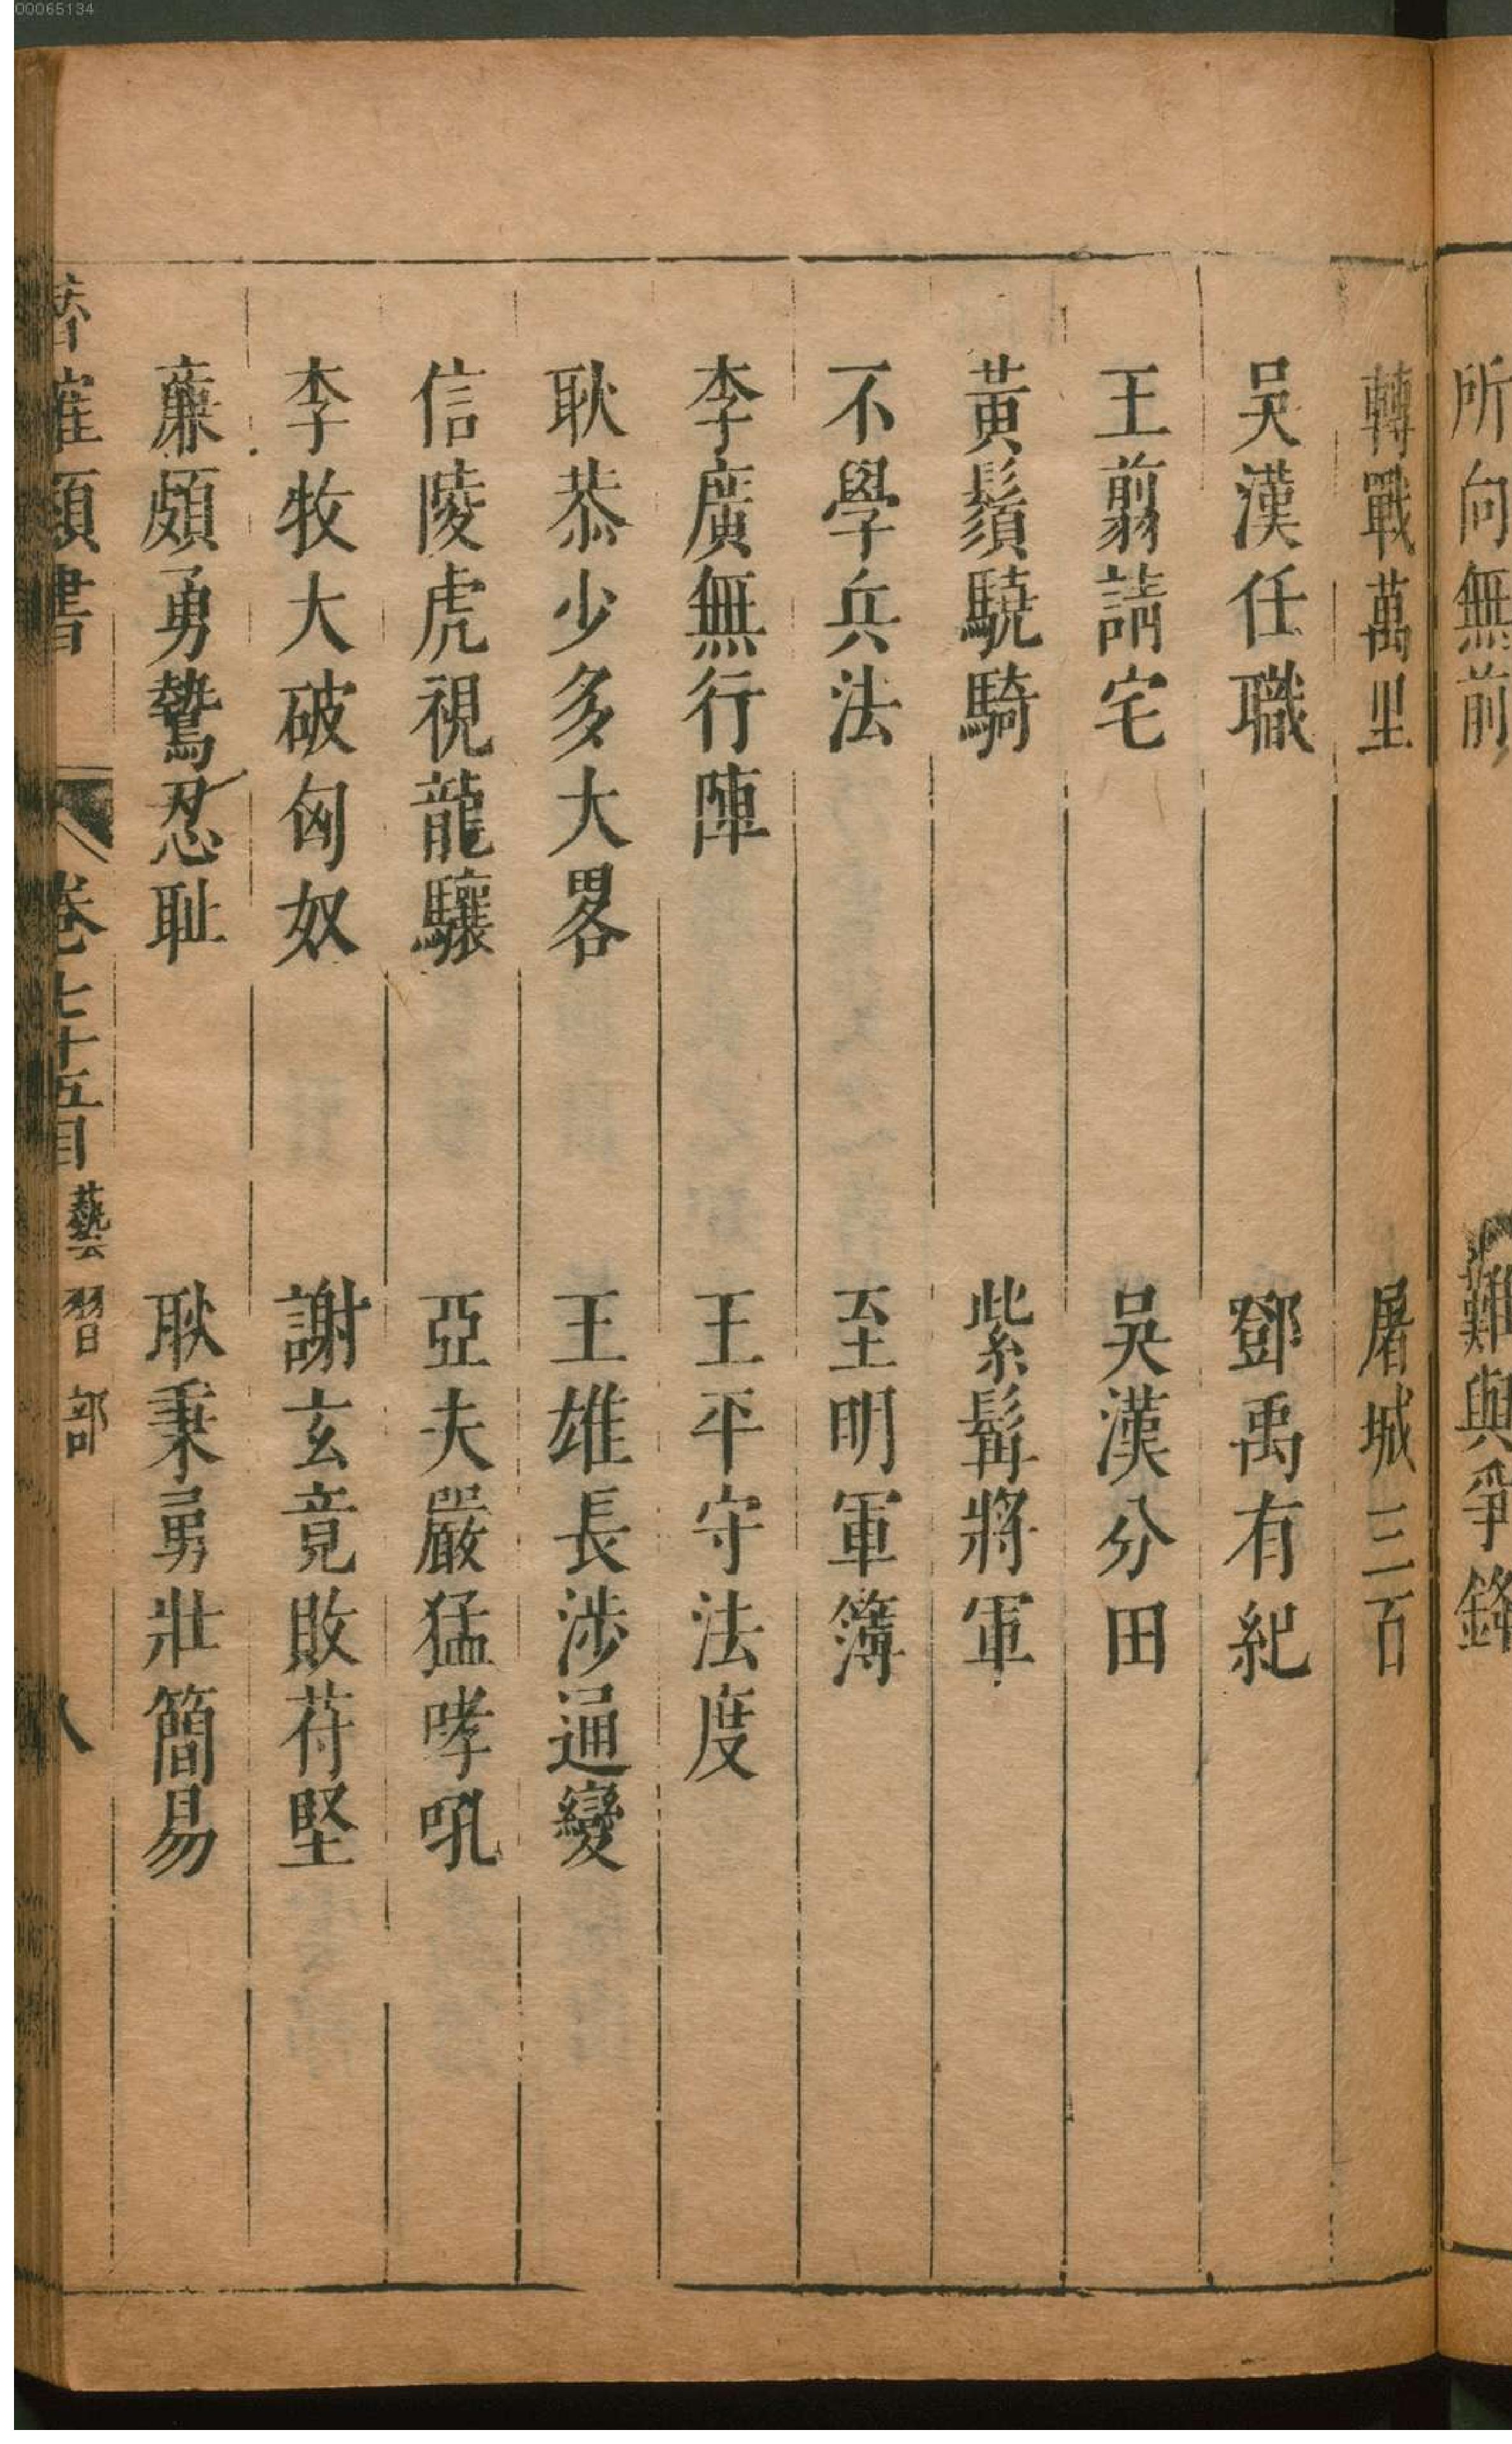 00065134
所向無前 難與爭鋒
轉戰萬里 屠城三百
吳漢任職 鄧禹有紀
王翦請宅 吳漢分田
黃鬚驍騎 紫髯將軍
不學兵法 至明軍簿
李廣無行陣 王平守法度
耿恭少多大畧 王雄長涉通變
信陵虎視龍驤 亞夫嚴猛哮吼
李牧大破匈奴 謝玄竟敗苻堅
廉頗勇鷙忍耻 耿秉勇壯簡易
潛確類書 卷七十五目 藝習部 八